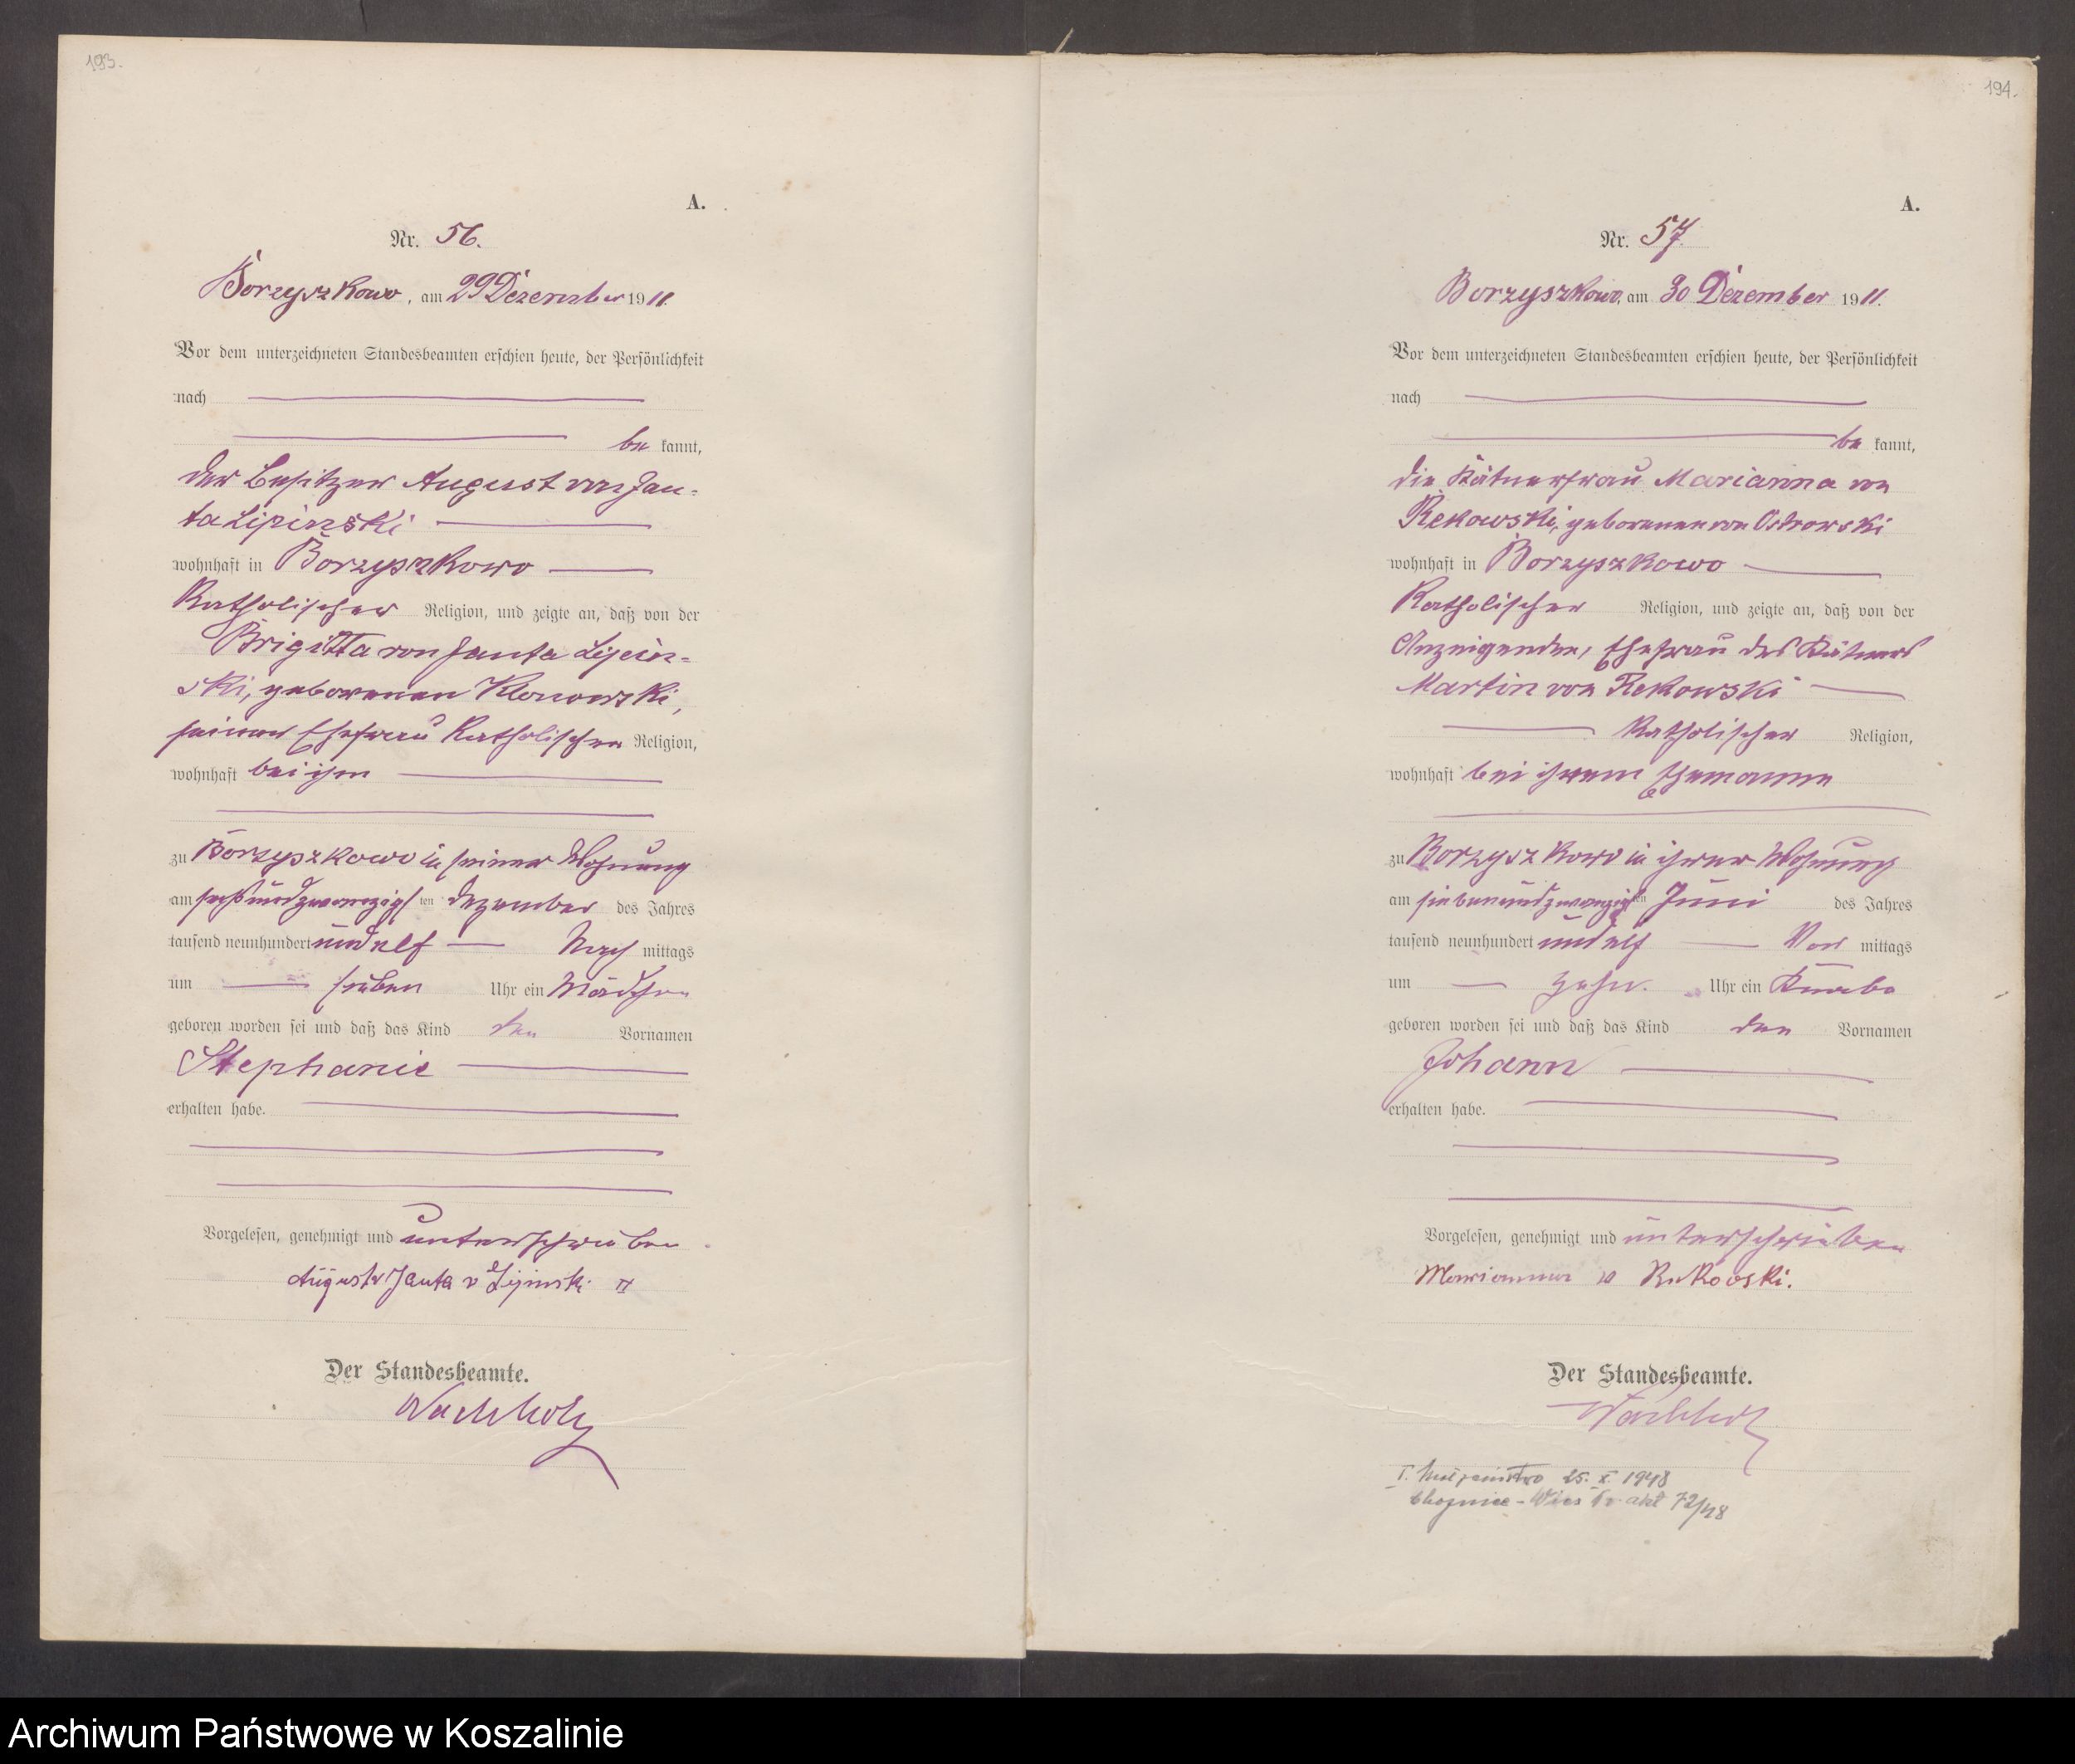 193.
A.
Nr. 56.
Borzyszkowo, am 29 Dezember 1911.
Vor dem unterzeichneten Standesbeamten erschien heute, der Persönlichkeit
nach
be kannt,
der Besitzer August von Jan-
ta Lipinski
wohnhaft in Borzyszkowo
Katholischer Religion, und zeigte an, daß von der
Brigitta von Janta Lipin-
ski, geborenen Klonowski,
seiner Ehefrau Katholischen Religion,
wohnhaft bei ihm
zu Borzyszkowo in seiner Wohnung
am sechsundzwanzigsten Dezember des Jahres
tausend neunhundert und elf Nach mittags
um sieben Uhr ein Mädchen
geboren worden sei und daß das Kind den Vornamen
Stephanie
erhalten habe.
Vorgelesen, genehmigt und unterschrieben
August Janta v Lipinski II
Der Standesbeamte.
Wachholz
194.
A.
Nr. 57.
Borzyszkowo, am 30 Dezember 1911.
Vor dem unterzeichneten Standesbeamten erschien heute, der Persönlichkeit
nach
be kannt,
die Kätnerfrau Marianna von
Rekowski, geborenen von Ostrowski
wohnhaft in Borzyszkowo
Katholischer Religion, und zeigte an, daß von der
Anzeigenden, Ehefrau des Kätners
Martin von Rekowski
Katholischer Religion,
wohnhaft bei ihrem Ehemanne
zu Borzyszkowo in ihrer Wohnung
am siebenundzwanzigsten Juni des Jahres
tausend neunhundert und elf Vor mittags
um zehn. Uhr ein Knabe
geboren worden sei und daß das Kind den Vornamen
Johann
erhalten habe.
Vorgelesen, genehmigt und unterschrieben
Marianna v Rekowski.
Der Standesbeamte.
Wachholz
I. 25. X. 1948
Chojnice - Wieś Nr. akt 72/48
Archiwum Państwowe w Koszalinie